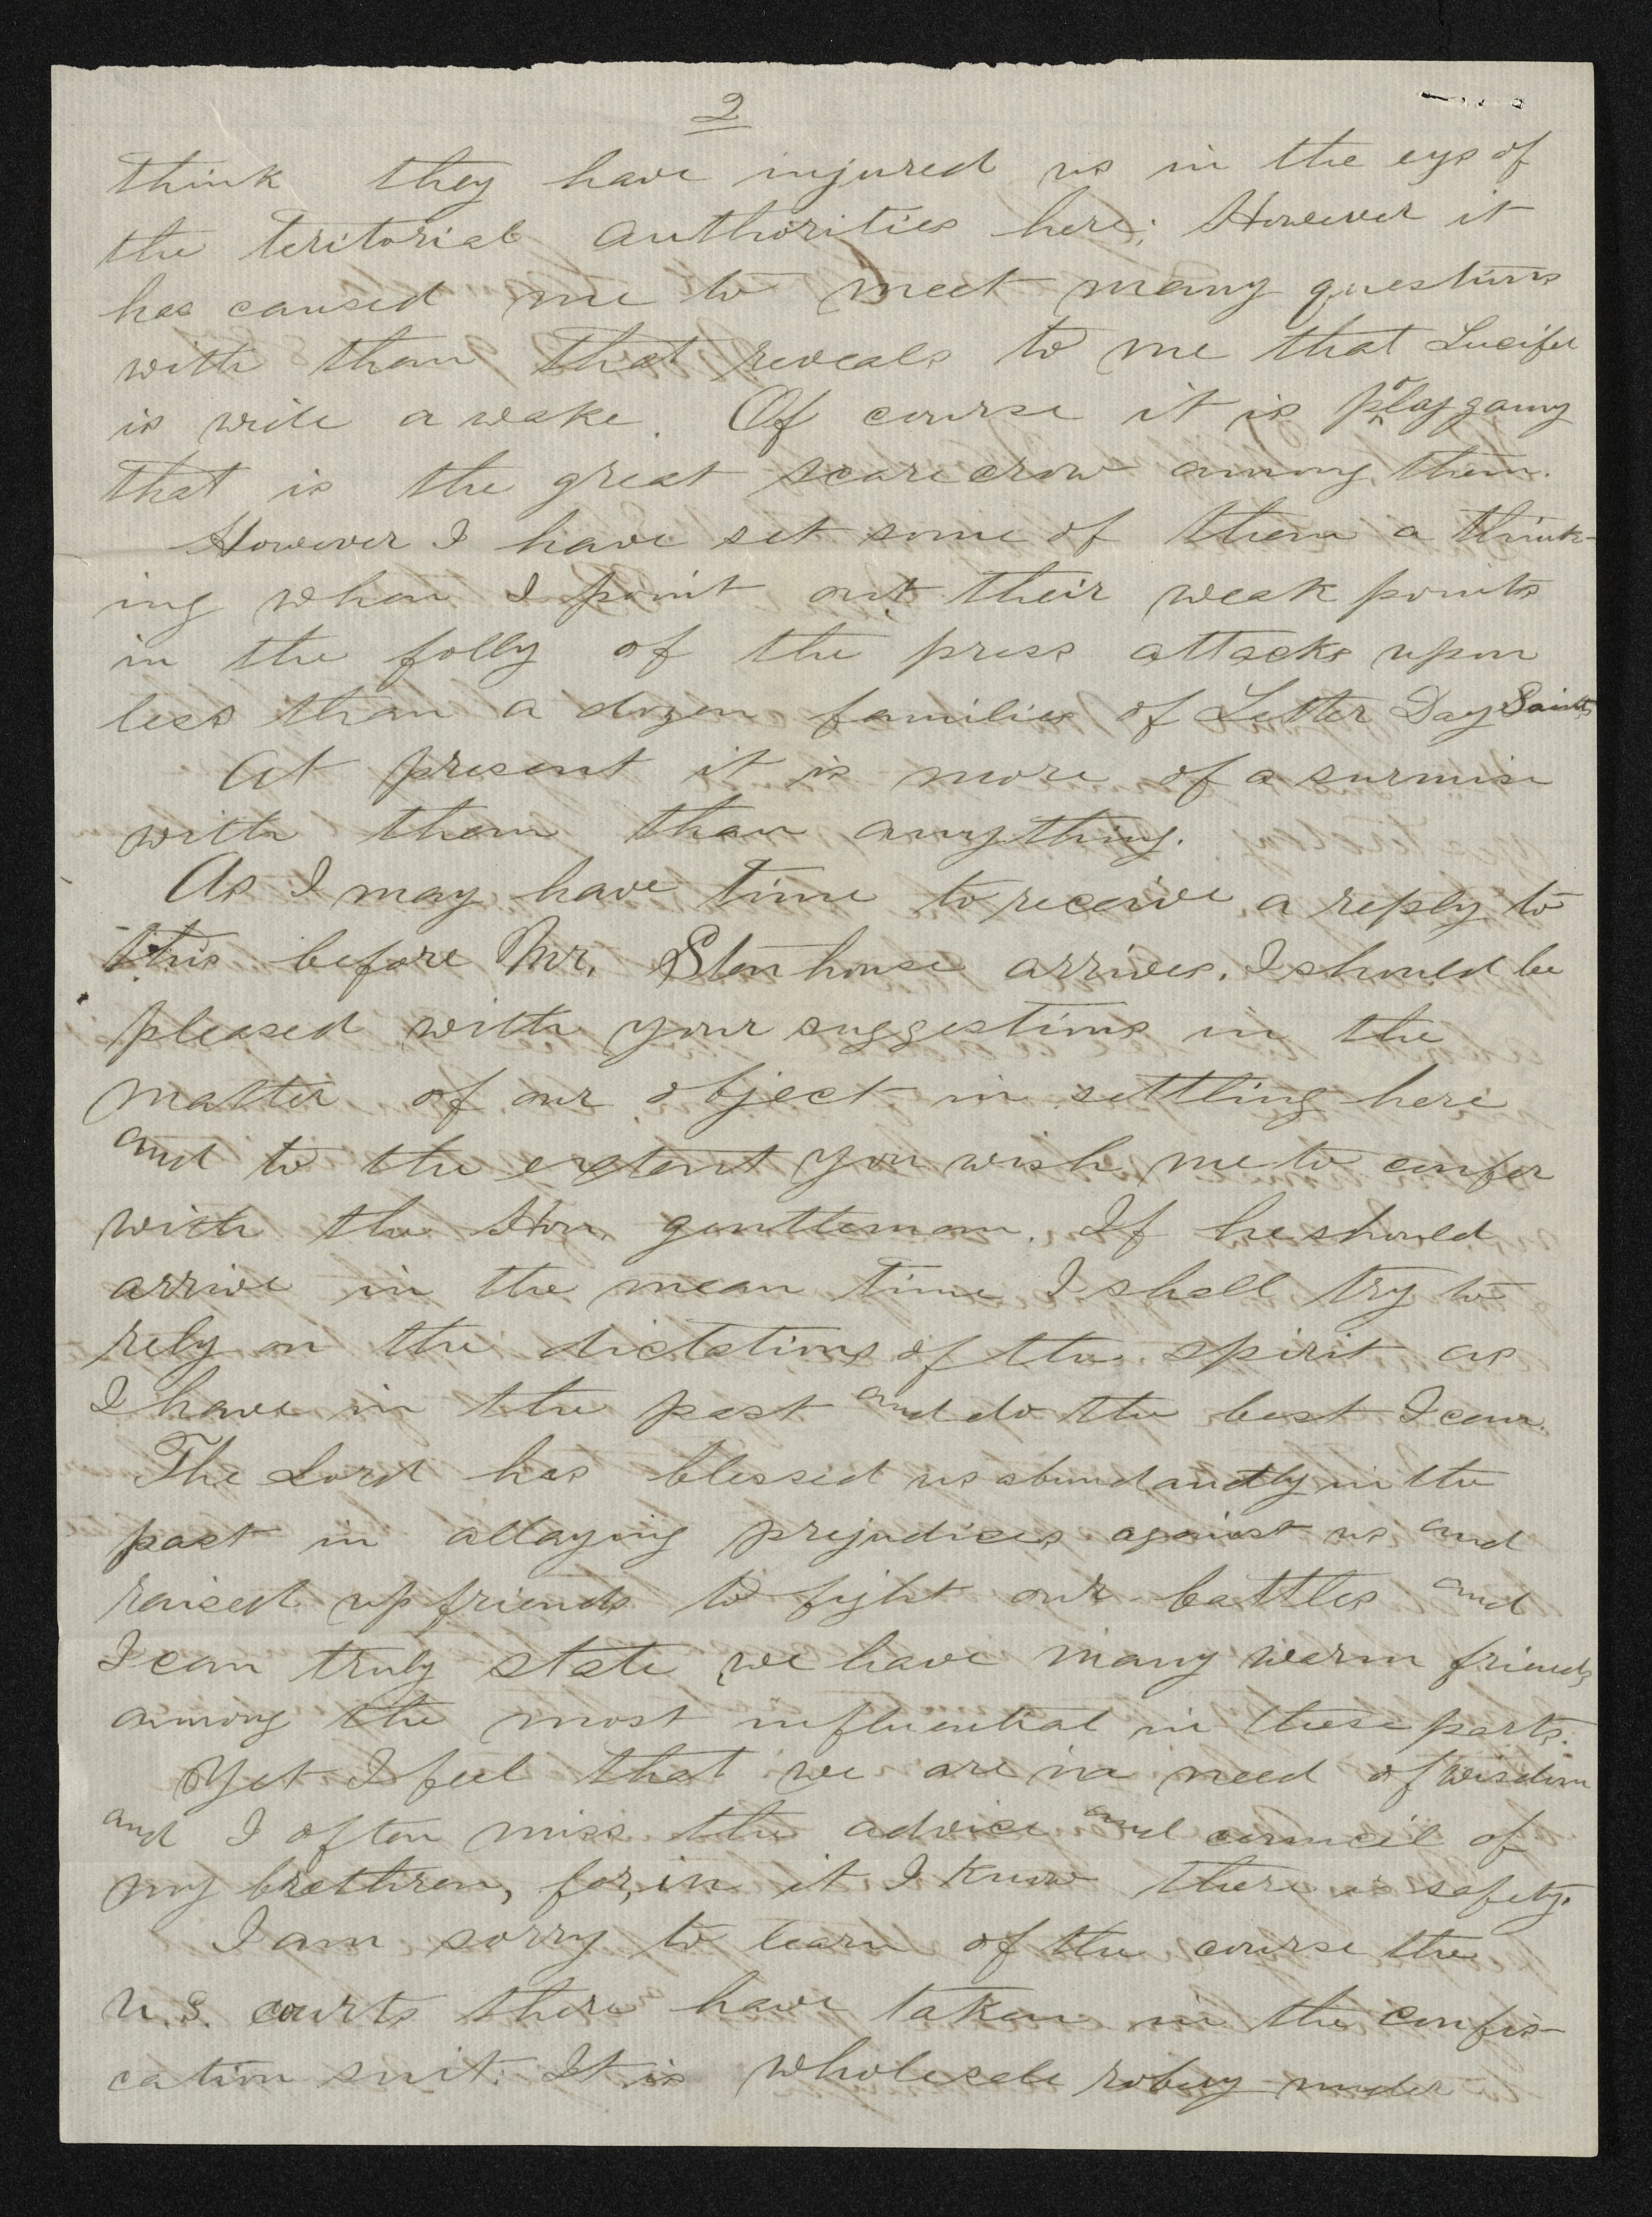 2
think they have injured us in the eys of
the teritorial authorities here; However it
has caused me to meet many questions
with them that reveals to me that Lucifer
is wide a wake. Of course it is ploygamy
that is the great scare crow among them.
However I have set some of them a think-
ing when I point out their weak points
in the folly of the press attacks upon
less than a dozen families of Latter Day Saints
At present it is more of a surmise
with them than anything.
As I may have time to receive a reply to
this before Mr. Stenhouse arrives. I should be
pleased with your suggestions in the
matter of our object in settling here
and to the extent you wish me to confer
with the Hon. gentleman. If he should
arrive in the mean time I shall try to
rely on the dictations of the spirit as
I have in the past and do the best I can.
The Lord has blessed us abundantly in the
past in allaying prejudices against us and
raised up friends to fight our battles and
I can truly state we have many warm friends
among the most influential in these parts.
Yet I feel that we are in need of wisdom
and I often miss the advice and council of
my brethren, for, in it I know there is safety.
I am sorry to learn of the course the
U.S. courts there have taken in the confis-
cation suit. It is wholesale robery under